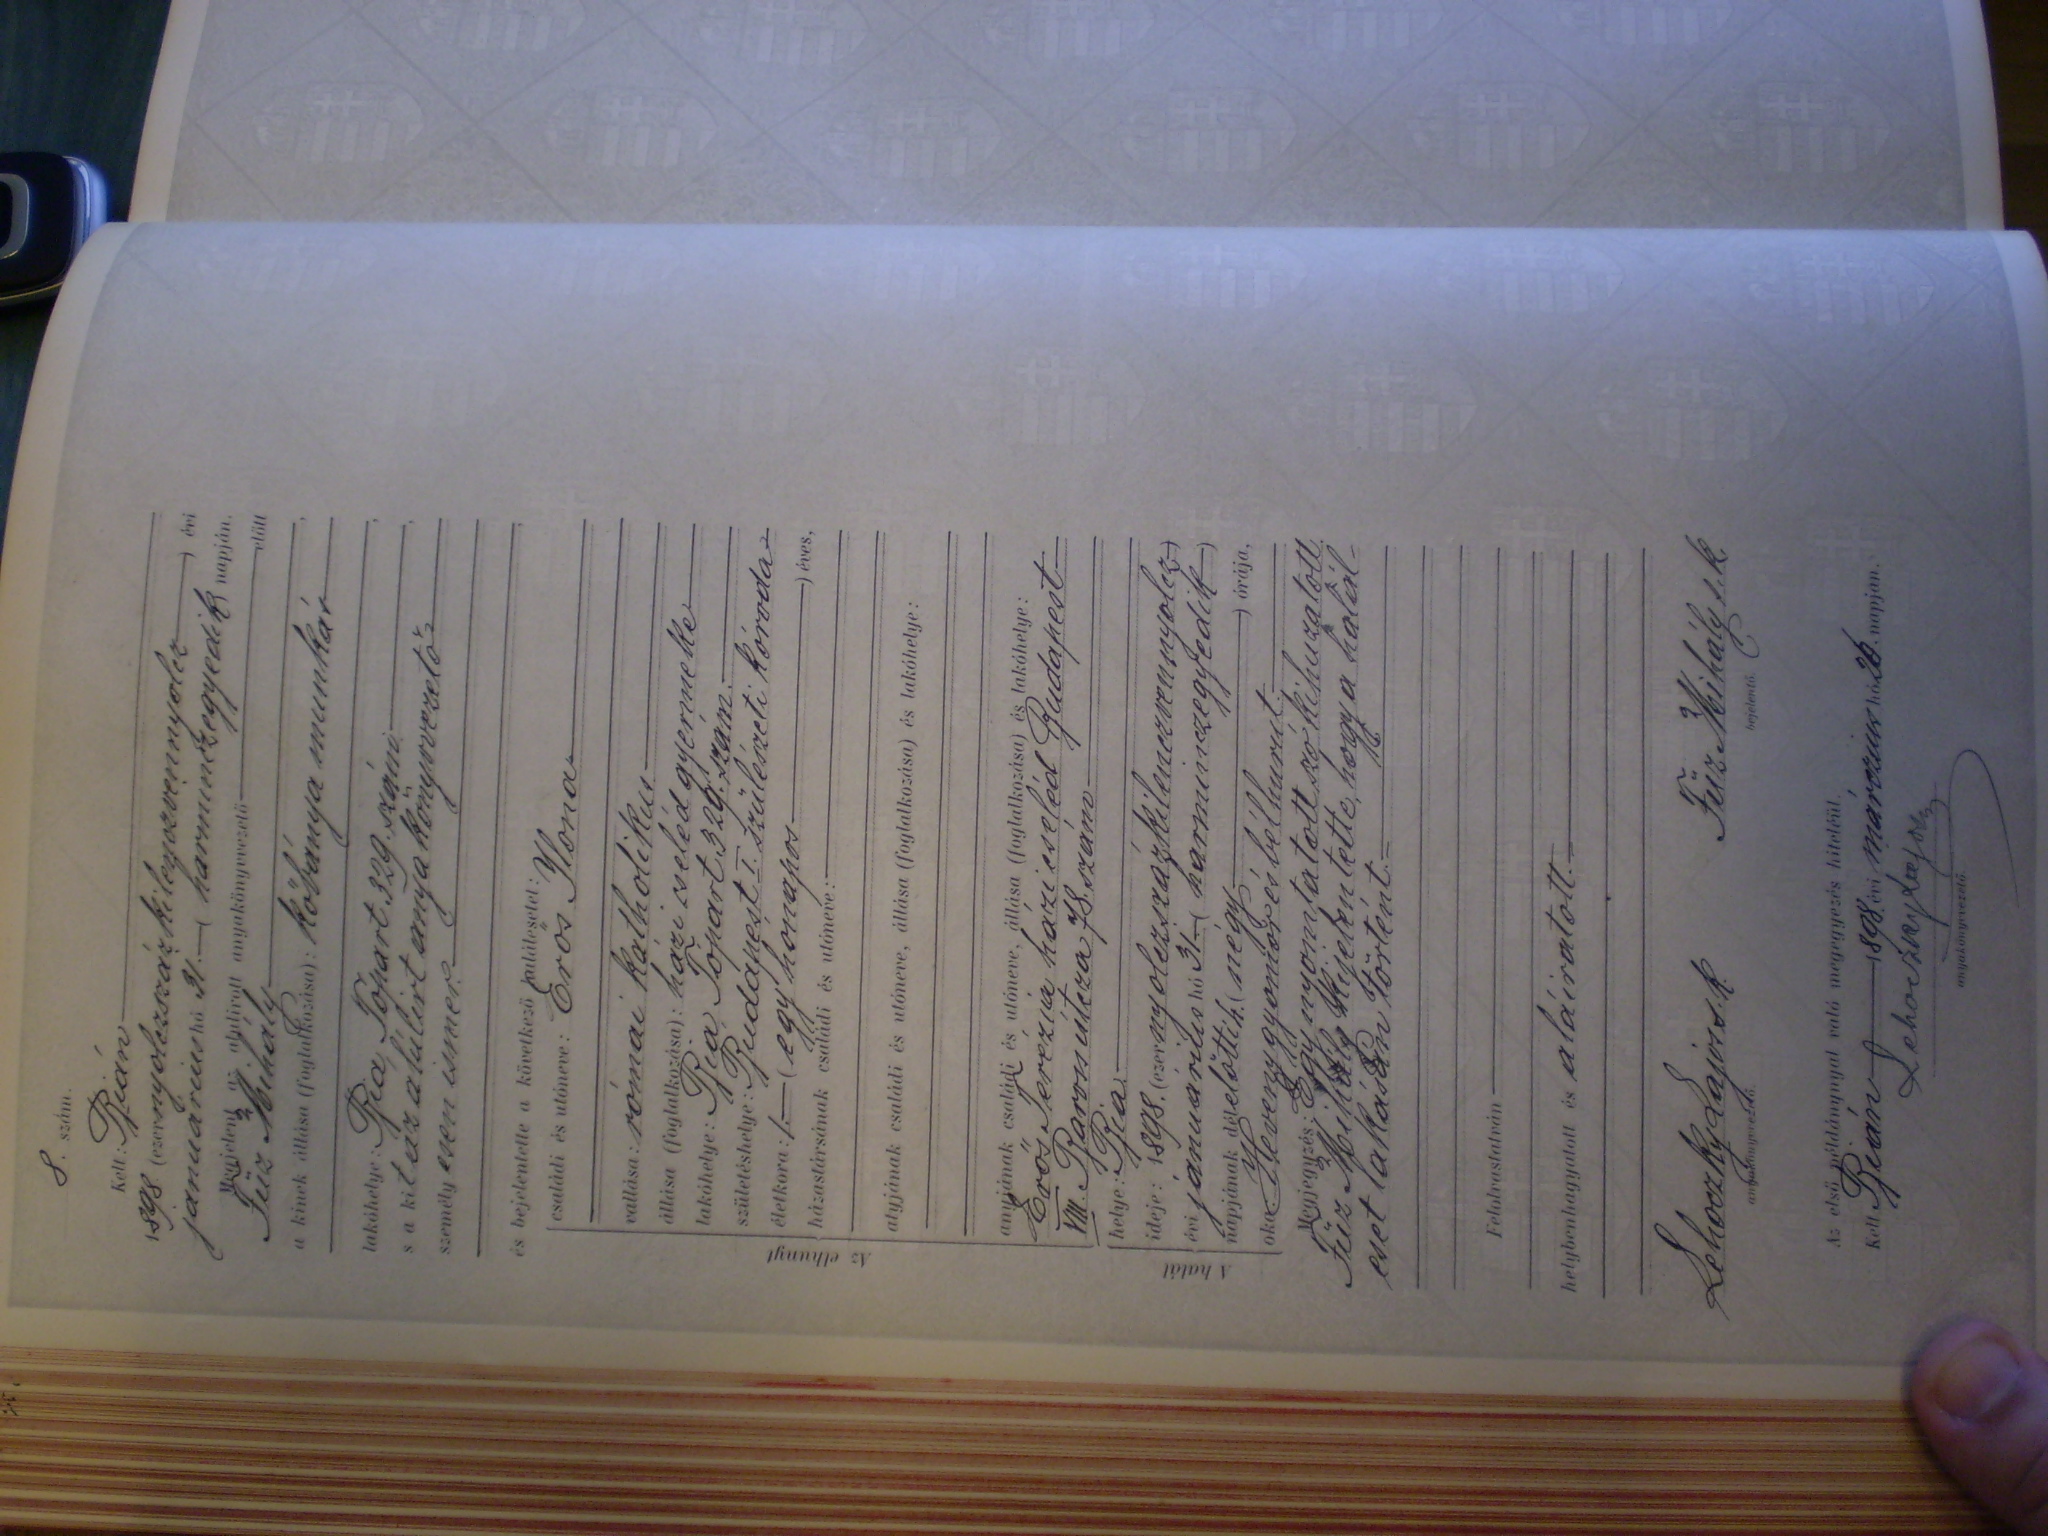 8. szám.
Kelt: Bián
1898 (ezernyolczszázkilenczvennyolcz) évi
januárius hó 31. (harminczegyedik) napján.
Megjelent az alulirott anyakönyvvezető előtt
Füz Mihály
a kinek állása (foglalkozása): kőbánya munkás,
lakóhelye: Bia, Tópart 329. szám,
s a kit az alulirt anyakönyvvezető,
személyesen ismer
és bejelentette a következő halálesetet:
Az elhunyt
családi és utóneve: Erős Ilona
vallása: római katholikus
állása (foglalkozása): házi cseléd gyermeke
lakóhelye: Bia Tópart 329. szám.
születéshelye: Budapest I. szülészeti kóroda
életkora: 1. (egy hónapos) éves,
házastársának családi és utóneve:
atyjának családi és utóneve, állása (foglalkozása) és lakóhelye:
anyjának családi és utóneve, állása (foglalkozása) és lakóhelye:
Erős Terézia házi cseléd Budapest
VIII. Baross utcza 78. szám
A halál
helye: Bia
ideje: 1898. (ezernyolczszázkilenczvennyolcz)
évi január hó 31. (harminczegyedik)
napjának délelőtti h. (négy) órája,
oka: Hevenygyomor és bélhurut.
Megjegyzés: Egy nyomtatott szó kihuzatott.
Füz Mihály kijelentette, hogy a halál-
eset lakásán történt.
Felolvastatván
helybenhagyatott és aláiratott.
Lehoczky Lajos s. k. Füz Mihály s. k.
anyakönyvvezető. bejelentő.
Az első példánynyal való megegyezés hiteléül.
Kelt Bián 1898. évi márczius hó 26. napján.
Lehoczky Lajos
anyakönyvvezető.